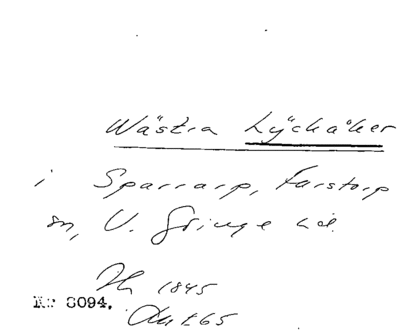 Wästra Lyckåker
i Sparrarp, Farstorp
sn, V. Göinge hd.
1845
8094.